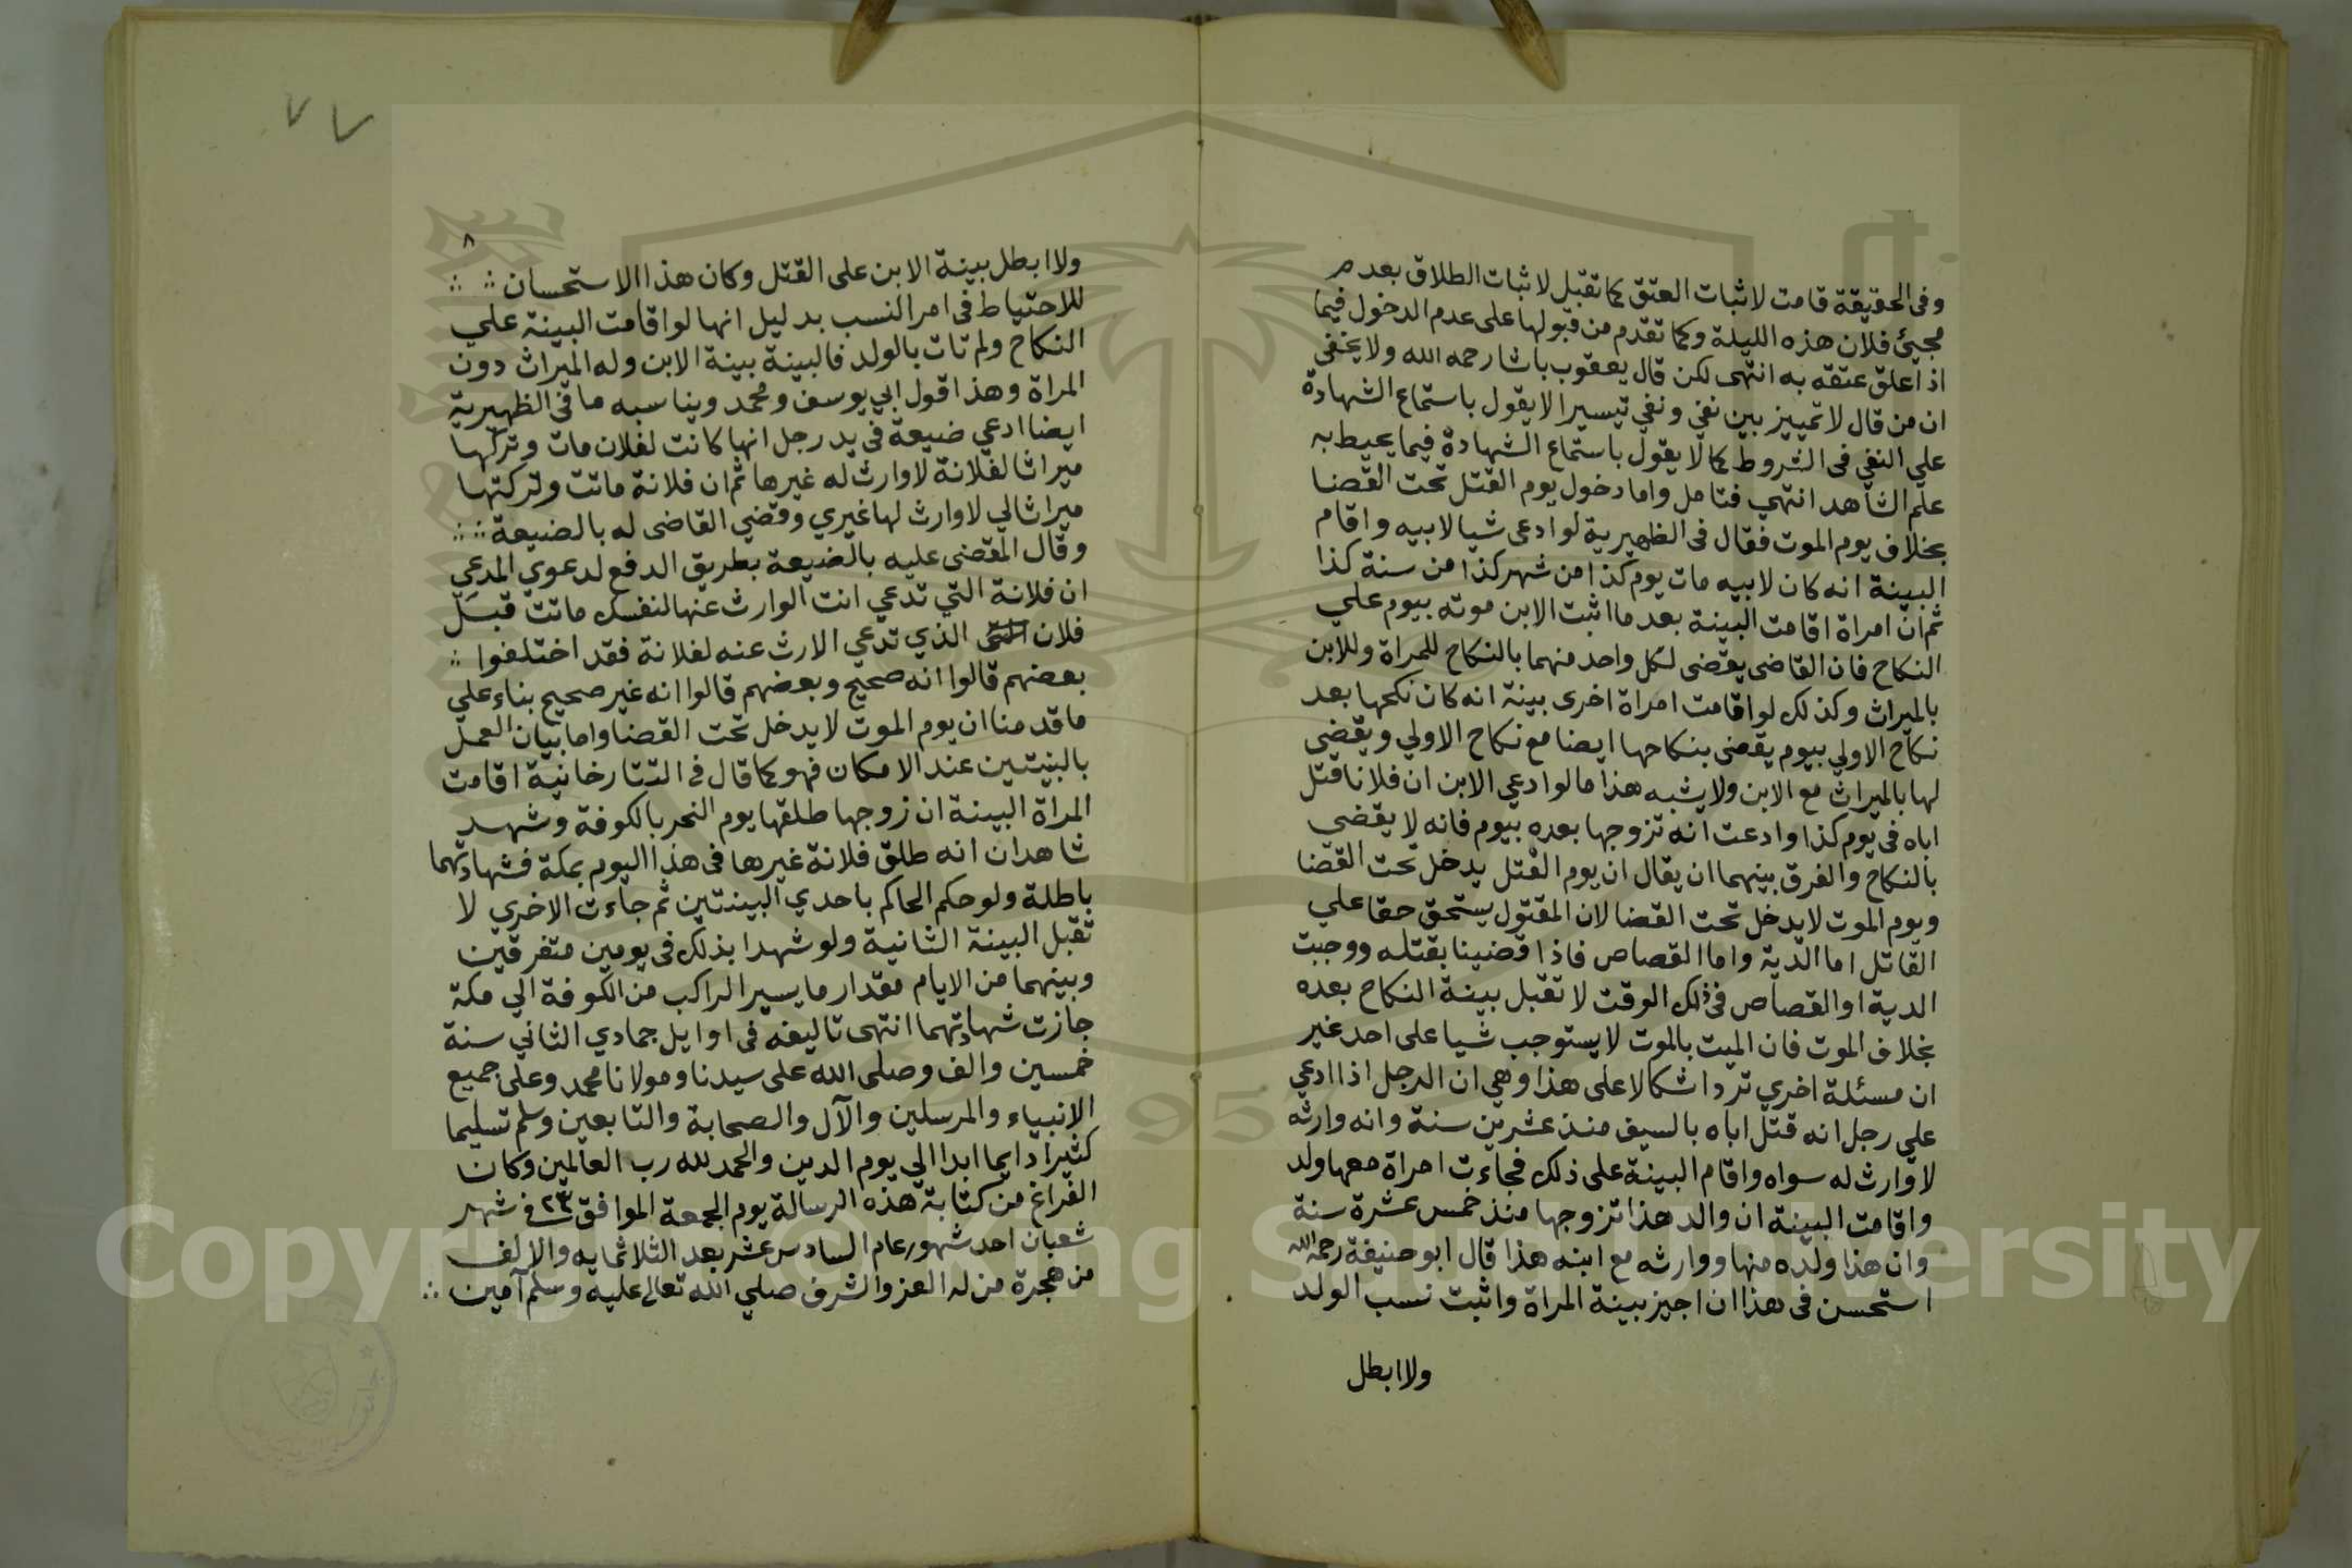 وفى الحقيقة قامت لاثبات العتق كما تقبل لاثبات الطلاق بعدم
مجيئ فلان هذه الليلة وكما تقدم من قبولها على عدم الدخول فيما
اذا علق عتقه به انتهى لكن قال يعقوب باشا رحمه الله ولا يخفى
ان من قال لا تمييز بين نفي ونفي تيسيرا لا يقول باستماع الشهادة
علي النفي فى الشروط كما لا يقول باستماع الشهادة فيما يحيط به
علم الشاهد انتهي فتامل واما دخول يوم القتل تحت القضا
بخلاف يوم الموت فقال فى الظهيرية لو ادعى شيا لابيه واقام
البينة انه كان لابيه مات يوم كذا من شهر كذا من سنة كذا
ثم ان امراة اقامت البينة بعد ما اثبت الابن موته بيوم علي
النكاح فان القاضى يقضى لكل واحد منهما بالنكاح للمراة وللابن
بالميراث وكذلك لو اقامت امراة اخرى بينة انه كان نكحها بعد
نكاح الاولي بيوم يقضى بنكاحها ايضا مع نكاح الاولي ويقضي
لها بالميراث مع الابن ولا يشبه هذا ما لو ادعي الابن ان فلانا قتل
اباه فى يوم كذا وادعت انه تزوجها بعده بيوم فانه لا يقضي
بالنكاح والفرق بينهما ان يقال ان يوم القتل يدخل تحت القضا
ويوم الموت لا يدخل تحت القضا لان المقتول يستحق حقا علي
القاتل اما الدية واما القصاص فاذا قضينا بقتله ووجبت
الدية او القصاص فى ذلك الوقت لا تقبل بينة النكاح بعده
بخلاف الموت فان الميت بالموت لا يستوجب شيا على احد غير
ان مسئلة اخري ترد اشكالا على هذا وهي ان الرجل اذا ادعي
علي رجل انه قتل اباه بالسيف منذ عشرين سنة وانه وارثه
لا وارث له سواه واقام البينة على ذلك فجاءت امراة معها ولد
واقامت البينة ان والد هذا تزوجها منذ خمس عشرة سنة
وان هذا ولده منها ووارثه مع ابنه هذا قال ابو حنيفة رحمه الله
استحسن فى هذا ان اجيز بينة المراة واثبت نسب الولد
ولا ابطل
٧٧
٨
ولا ابطل بينة الابن على القتل وكان هذا الاستحسان
للاحتياط فى امر النسب بدليل انها لو اقامت البينة علي
النكاح ولم تات بالولد فالبينة بينة الابن وله الميراث دون
المراة وهذا قول ابي يوسف ومحمد ويناسبه ما فى الظهيرية
ايضا ادعي ضيعة فى يد رجل انها كانت لفلان مات وتركها
ميراثا لفلانة لا وارث له غيرها ثم ان فلانة ماتت وتركتها
ميراثا لي لا وارث لها غيري وقضي القاضى له بالضيعة
وقال المقضى عليه بالضيعة بطريق الدفع لدعوي المدعي
ان فلانة التي تدعي انت الوارث عنها لنفسك ماتت قبل
فلان الذي تدعي الارث عنه لفلانة فقد اختلفوا
بعضهم قالوا انه صحيح وبعضهم قالوا انه غير صحيح بناء على
ما قدمنا ان يوم الموت لا يدخل تحت القضا واما بيان العمل
بالبنيتين عند الامكان فهو كما قال فى التتارخانية اقامت
المراة البينة ان زوجها طلقها يوم النحر بالكوفة وشهد
شاهدان انه طلق فلانة غيرها فى هذا اليوم بمكة فشهادتهما
باطلة ولو حكم الحاكم باحدي البينتين ثم جاءت الاخري لا
تقبل البينة الثانية ولو شهدا بذلك فى يومين متفرقين
وبينهما من الايام مقدار ما يسير الراكب من الكوفة الي مكة
جازت شهادتهما انتهى تاليفه فى اوايل جمادي الثاني سنة
خمسين والف وصلى الله على سيدنا ومولانا محمد وعلى جميع
الانبياء والمرسلين والآل والصحابة والتابعين وسلم تسليما
كثيرا دايما ابدا الي يوم الدين والحمد لله رب العالمين وكان
الفراغ من كتابة هذه الرسالة يوم الجمعة الموافق ٢٣ فى شهر
شعبان احد شهور عام السادس عشر بعد الثلاثمايه والالف
من هجرة من له العز والشرف صلي الله تعالى عليه وسلم آمين
Copyright © King Saud University